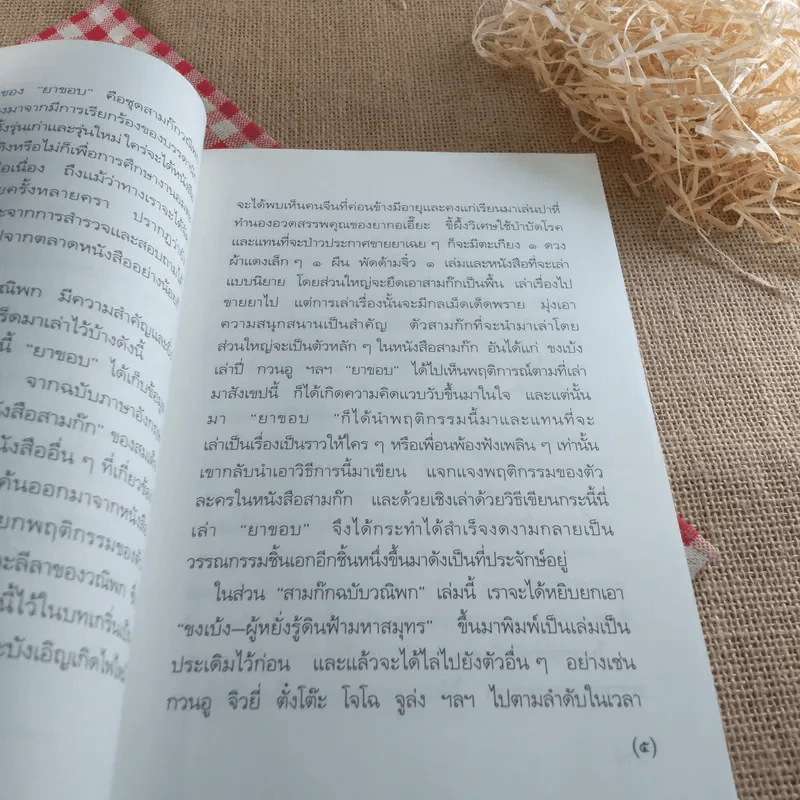 ของ “ยาขอบ” คือชุดสามก๊กวณิพก
มาจากมีการเรียกร้องของบรรดา
รุ่นเก่าและรุ่นใหม่ ใคร่จะได้หนังสือ
หรือไม่ก็เพื่อการศึกษางาน
เนื่อง ถึงแม้ว่าทางเราจะได้
ครั้งหลายครา ปรากฏว่า
จากการสำรวจและสอบถาม
จากตลาดหนังสืออย่าง
มีความสำคัญและ
มาเล่าไว้บ้างดังนี้
นี้ “ยาขอบ” ได้เก็บ
จากฉบับภาษาอังกฤษ
สามก๊ก” ของ
หนังสืออื่น ๆ ที่เกี่ยวข้อง
ค้นออกมาจากหนังสือ
ยกพฤติกรรมของ
ลีลาของวณิพก
นี้ไว้ในบทเกริ่น
บังเอิญเกิด
จะได้พบเห็นคนจีนที่ค่อนข้างมีอายุและคงแก่เรียนมาเล่นปาหี่
ทำนองอวดสรรพคุณของยากอเอี๊ยะ ขี้ผึ้งวิเศษใช้บำบัดโรค
และแทนที่จะป่าวประกาศขายยาเฉย ๆ ก็จะมีตะเกียง ๑ ดวง
ผ้าแดงเล็ก ๆ ๑ ผืน พัดด้ามจิ๋ว ๑ เล่มและหนังสือที่จะเล่า
แบบนิยาย โดยส่วนใหญ่จะยึดเอาสามก๊กเป็นพื้น เล่าเรื่องไป
ขายยาไป แต่การเล่าเรื่องนั้นจะมีกลเม็ดเด็ดพราย มุ่งเอา
ความสนุกสนานเป็นสำคัญ ตัวสามก๊กที่จะนำมาเล่าโดย
ส่วนใหญ่จะเป็นตัวหลัก ๆ ในหนังสือสามก๊ก อันได้แก่ ขงเบ้ง
เล่าปี่ กวนอู ฯลฯ “ยาขอบ” ได้ไปเห็นพฤติการณ์ตามที่เล่า
มาสังเขปนี้ ก็ได้เกิดความคิดแวบวับขึ้นมาในใจ และแต่นั้น
มา “ยาขอบ “ก็ได้นำพฤติกรรมนี้มาและแทนที่จะ
เล่าเป็นเรื่องเป็นราวให้ใคร ๆ หรือเพื่อนพ้องฟังเพลิน ๆ เท่านั้น
เขากลับนำเอาวิธีการนี้มาเขียน แจกแจงพฤติกรรมของตัว
ละครในหนังสือสามก๊ก และด้วยเชิงเล่าด้วยวิธีเขียนกระนี้นี่
เล่า “ยาขอบ” จึงได้กระทำได้สำเร็จงดงามกลายเป็น
วรรณกรรมชิ้นเอกอีกชิ้นหนึ่งขึ้นมาดังเป็นที่ประจักษ์อยู่
ในส่วน “สามก๊กฉบับวณิพก” เล่มนี้ เราจะได้หยิบยกเอา
“ขงเบ้ง—ผู้หยั่งรู้ดินฟ้ามหาสมุทร” ขึ้นมาพิมพ์เป็นเล่มเป็น
ประเดิมไว้ก่อน และแล้วจะได้ไล่ไปยังตัวอื่น ๆ อย่างเช่น
กวนอู จิวยี่ ตั๋งโต๊ะ โจโฉ จูล่ง ฯลฯ ไปตามลำดับในเวลา
(๕)